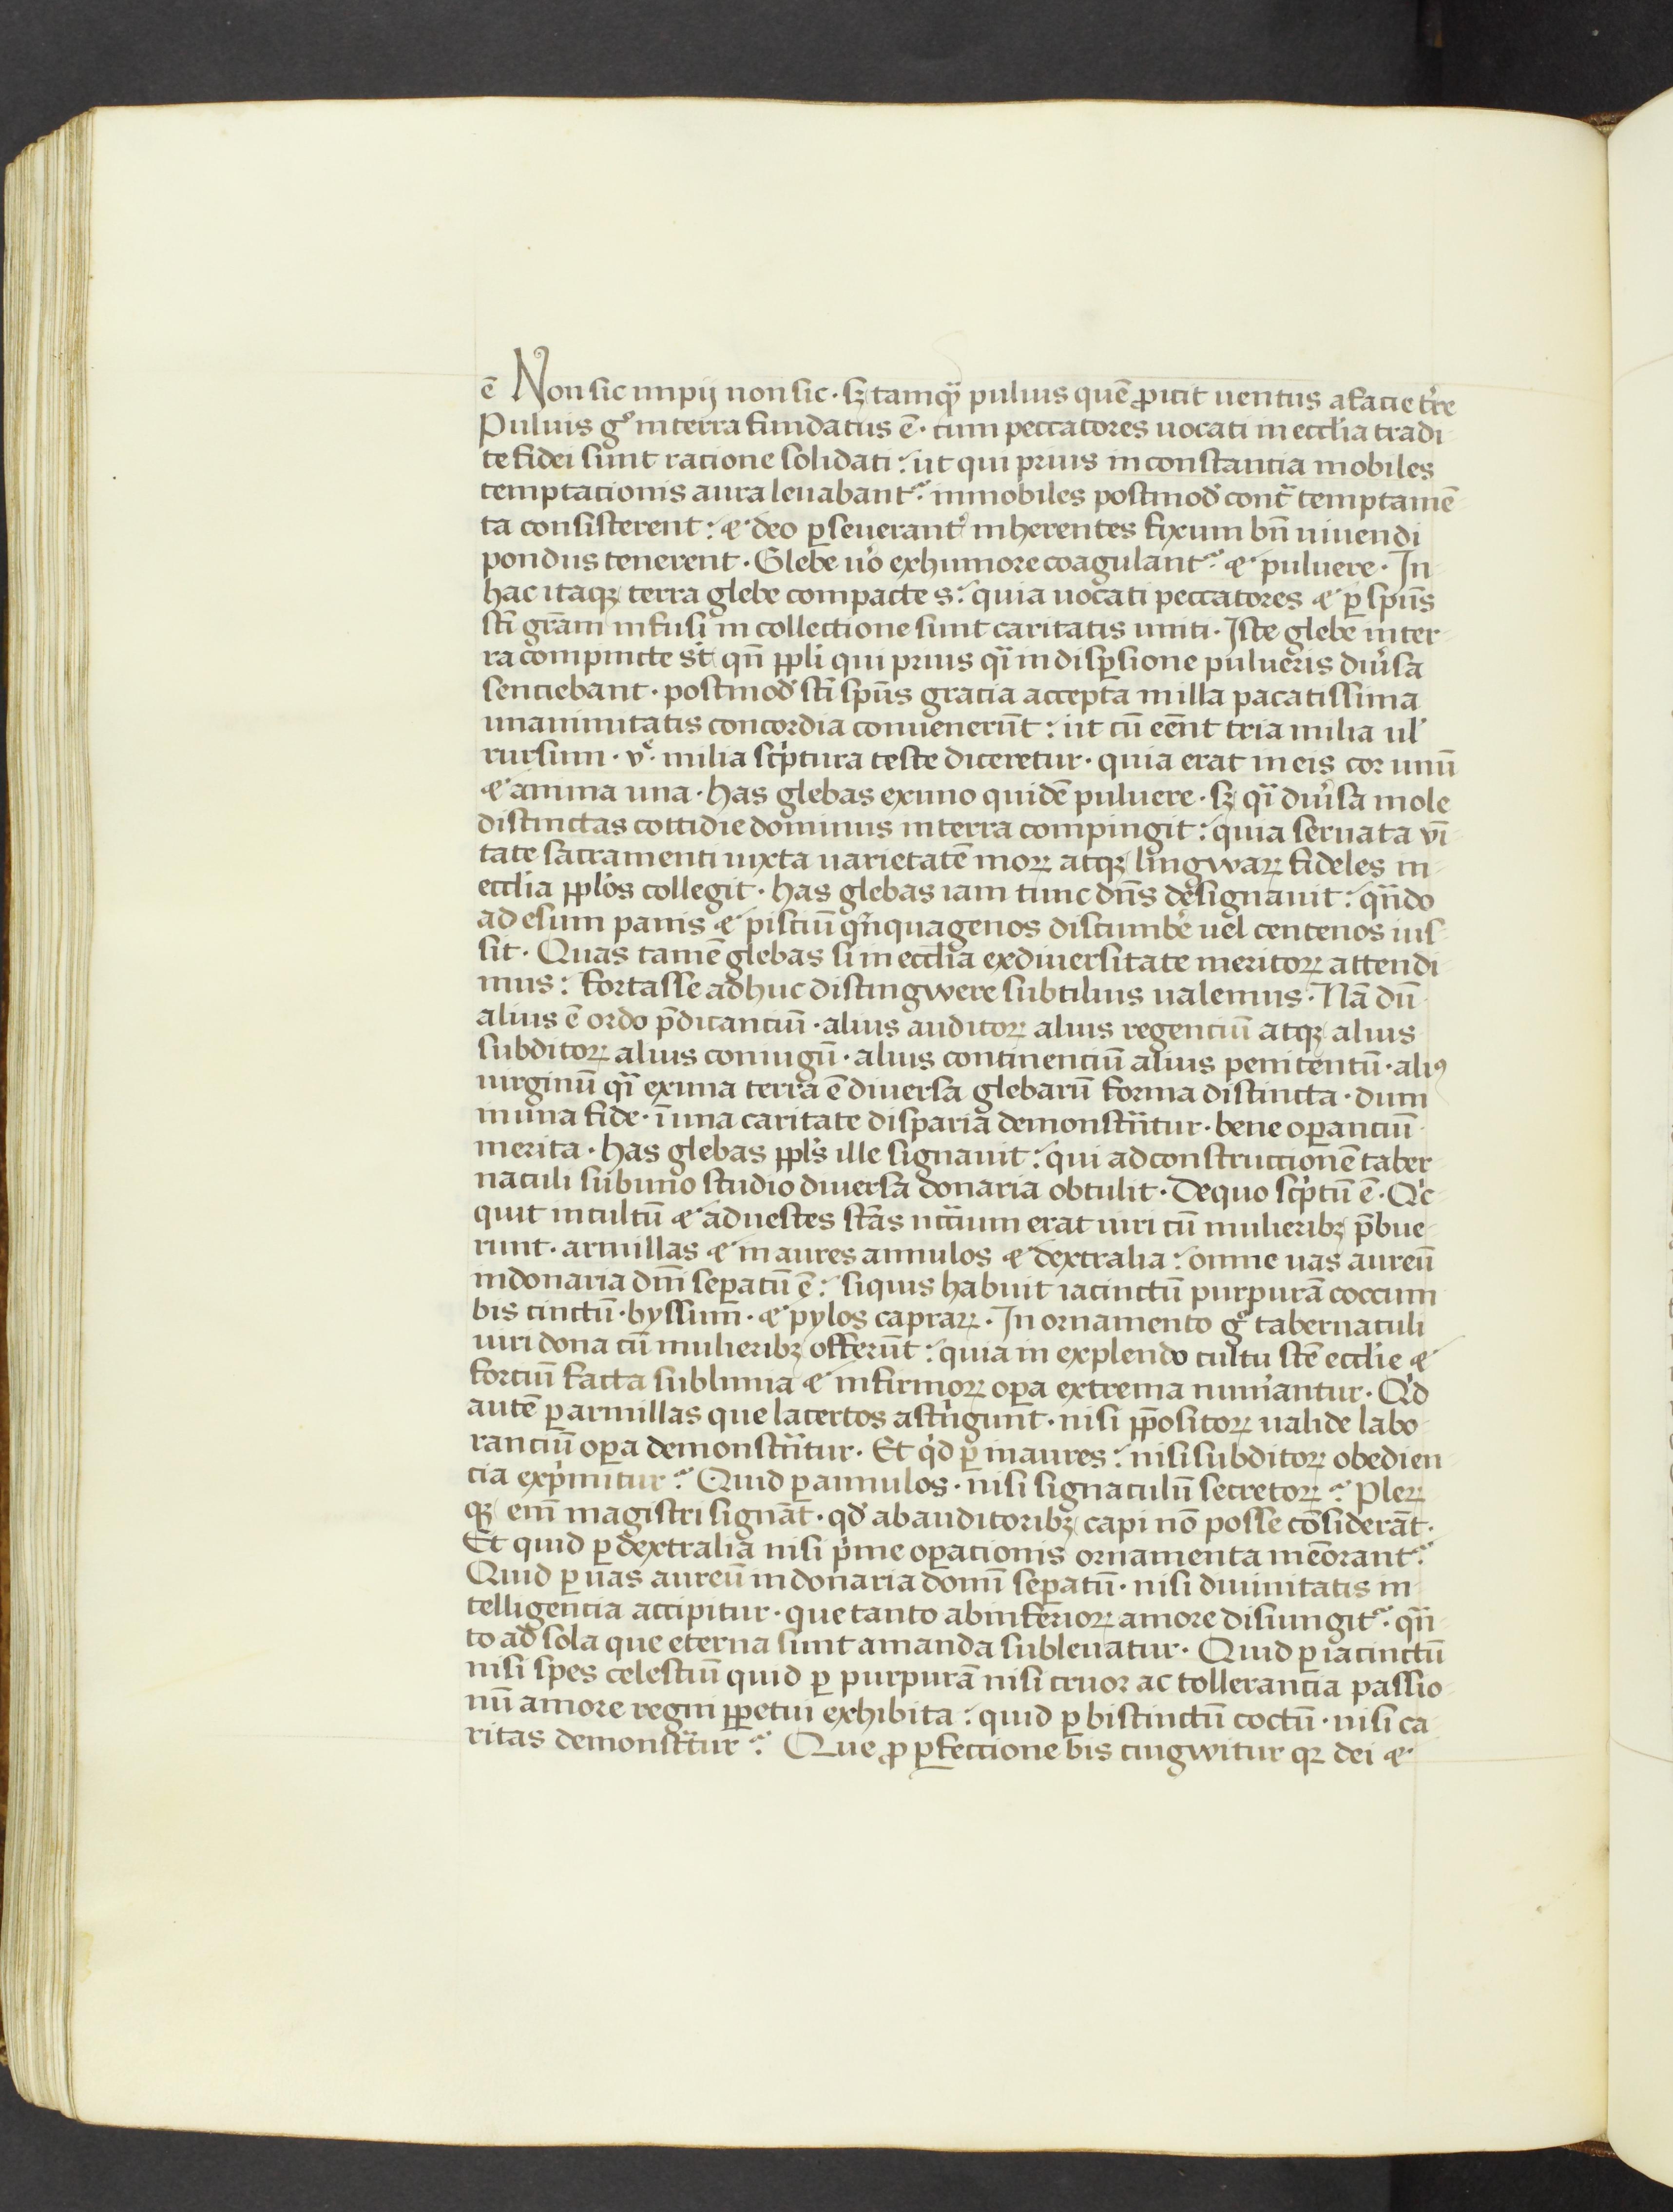 ē Non sic impij non sic · sꝫ tamqᷓ puluis quē ꝓicit uentus a facie t͛re
Puluis gͦ in terra fundatus ē · cum peccatores uocati in eccłia tradi
te fidei sunt racione solidati : ut qui prius inconstantia mobiles
temptacionis aura leuabant᷑ : inmobiles postmod͛ cont᷑ temptamē
ta consisterent : ⁊ deo ꝑseuerant͛ inherentes fixum bn̄ uiuendi
pondus tenerent · Glebe u͛o ex humore coagulant᷑ ⁊ puluere · In
hac itaqꝫ terra glebe compacte s : quia uocati peccatores ⁊ ꝑ sp̄us
sc̄i grām infusi in collectione sunt caritatis uniti · Iste glebe in ter
ra compincte st̄ qn̄ ppli qui prius qᷓi in disꝑsione pulueris diu͛sa
senciebant · postmod͛ sc̄i sp̄us gracia accepta in illa pacatissima
unanimitatis concordia conuenerūt : ut cū eēnt tria milia ul͛
rursum · v͛ · milia sc͛ptura teste diceretur · quia erat in eis cor unū
⁊ anima una · has glebas ex uno quidē puluere · sꝫ qᷓi diu͛sa mole
distinctas cottidie dominus in terra compingit : quia seruata vī
tate sacramenti iuxta uarietatē moꝝ atqꝫ lingwaꝝ fideles in
eccłia pplos collegit · has glebas iam tunc dn̄s designauit : qᷓndo
ad esum panis ⁊ pisciū q͛nquagenos discumbe͛ uel centenos ius
sit · Quas tamē glebas si in eccłia ex diuersitate meritoꝝ attendi
mus : fortasse adhuc distingwere subtilius ualemus · Nā dū
alius ē ordo p̄dicanciū · alius auditoꝝ alius regenciū atqꝫ alius
subditoꝝ alius coniugū · alius continenciū alius penitentū · aliꝰ
uirginū qᷓi ex una terra ē diuersa glebarū forma distincta · dum
in una fide · ī una caritate disparia demonstᷓntur · bene oꝑanciū
merita · has glebas ppls ille signauit : qui ad construccionē taber
naculi sub uno studio diuersa donaria obtulit · De quo sc͛ptū ē · Q͛c
quit in cultū ⁊ ad uestes sc̄as nc̄cium erat uiri cū mulieribꝫ p̄bue
runt · armillas ⁊ inaures annulos ⁊ dextralia : omne uas aureū
in donaria dn̄i seꝑatū ē : siquis habuit iacinctū purpurā coccum
bis tinctū · byssum · ⁊ pylos capraꝝ · In ornamento gͦ tabernaculi
uiri dona cū mulieribꝫ offerūt : quia in explendo cultu sc̄e eccłie ⁊
forciū facta sublimia ⁊ infirmoꝝ oꝑa extrema num͛antur · Q͛d
autē ꝑ armillas que lacertos ast͛ngunt · nisi p̄positoꝝ ualide labo
ranciū oꝑa demonstᷓntur · Et q͛d ꝑ inaures : nisi subditoꝝ obedien
cia exp͛mitur : Quid ꝑ annulos · nisi signaculū secretoꝝ : Pleꝝ
qꝫ eni̅ magistri signāt · qd͛ ab auditoribꝫ capi nō posse cōsiderāt ·
Et quid ꝑ dextralia nisi p͛me oꝑacionis ornamenta mēorant᷑
Quid ꝑ uas aureū in donaria domī seꝑatū · nisi diuinitatis in
telligencia accipitur · que tanto ab inferioꝝ amore disiungit᷑ · qᷓn
to ad sola que eterna sunt amanda subleuatur · Quid ꝑ iacinctū
nisi spes celestiū quid ꝑ purpurā nisi cruor ac tollerancia passio
nū amore regni ꝑpetui exhibita : quid ꝑ bistinctū coctū · nisi ca
ritas demonstᷓtur : Que ꝓ ꝑfeccione bis tingwitur qꝛ dei ⁊